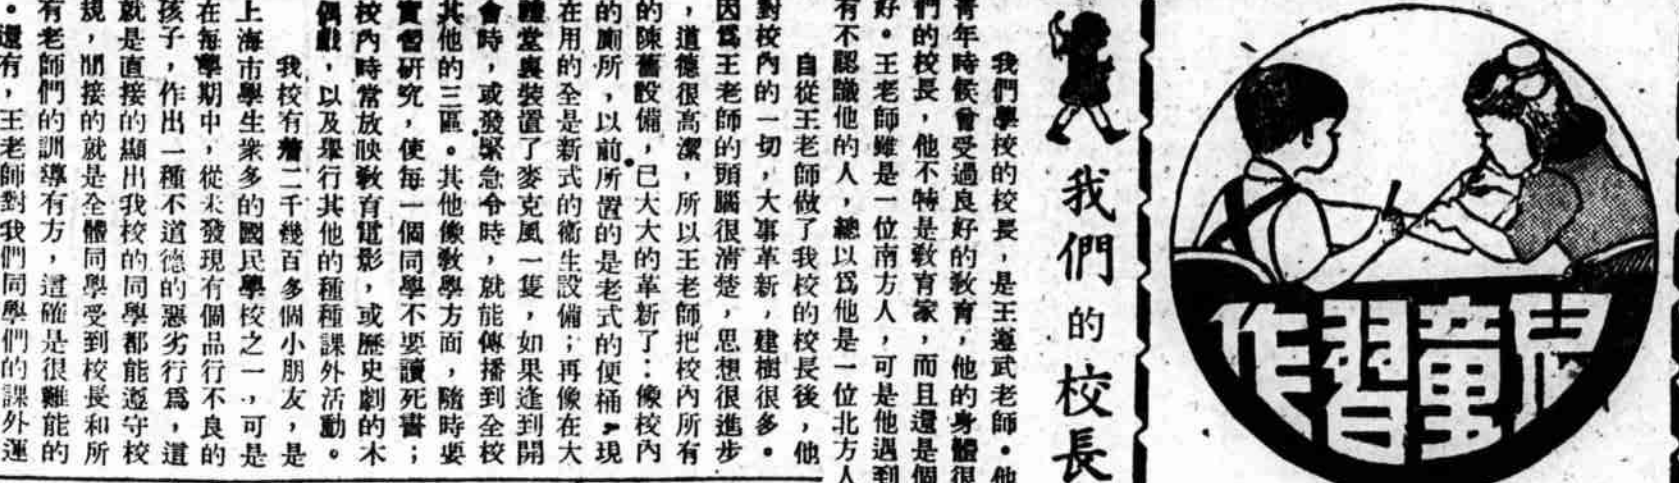 兒童習作
我們的校長
我們學校的校長，是王遵武老師。他
青年時候會受過良好的敎育，他的身體很
們的校長，他不特是敎育家，而且還是個
好。王老師雖是一位南方人，可是他遇到
有不認識他的人，總以爲他是一位北方人
自從王老師做了我校的校長後，他
對校內的一切，大事革新，建樹很多。
因爲王老師的頭腦很淸楚，思想很進步
，道德很高潔，所以王老師把校內所有
的陳舊設備，已大大的革新了：像校內
的廁所，以前所置的是老式的便桶，現
在用的全是新式的衞生設備；再像在大
禮堂裏裝置了麥克風一隻，如果逢到開
會時，或發緊急令時，就能傳播到全校
其他的三區。其他像敎學方面，隨時要
實習研究，使每一個同學不要讀死書；
校內時常放映敎育電影，或歷史劇的木
偶戲，以及舉行其他的種種課外活動。
我校有着二千幾百多個小朋友，是
上海市學生衆多的國民學校之一，可是
在每學期中，從未發現有個品行不良的
孩子，作出一種不道德的惡劣行爲，這
就是直接的顯出我校的同學都能遵守校
規，間接的就是全體同學受到校長和所
有老師們的訓導有方，這確是很難能的
。還有，王老師對我們同學們的課外運